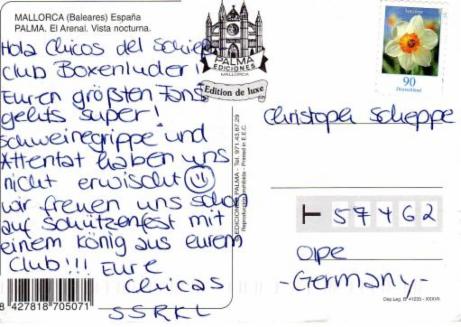 MALLORCA (Baleares) España
PALMA. El Arenal. Vista nocturna.
Hola Chicos del Schieß
Club Boxenluder!
Euren größten Fans
gehts super!
Schweinegrippe und
Attentat haben uns
nicht erwischt
wir freuen uns schon
auf Schützenfest mit
einem König aus eurem
Club!!! Eure
Chicas
SSRKL
8 427818 705071
PALMA
EDICIONES
MALLORCA
Edition de luxe
EDICIONES PALMA - Tel. 971.43.67.29
90
Deutschland
Christoph Scheppe
57462
Olpe
-Germany-